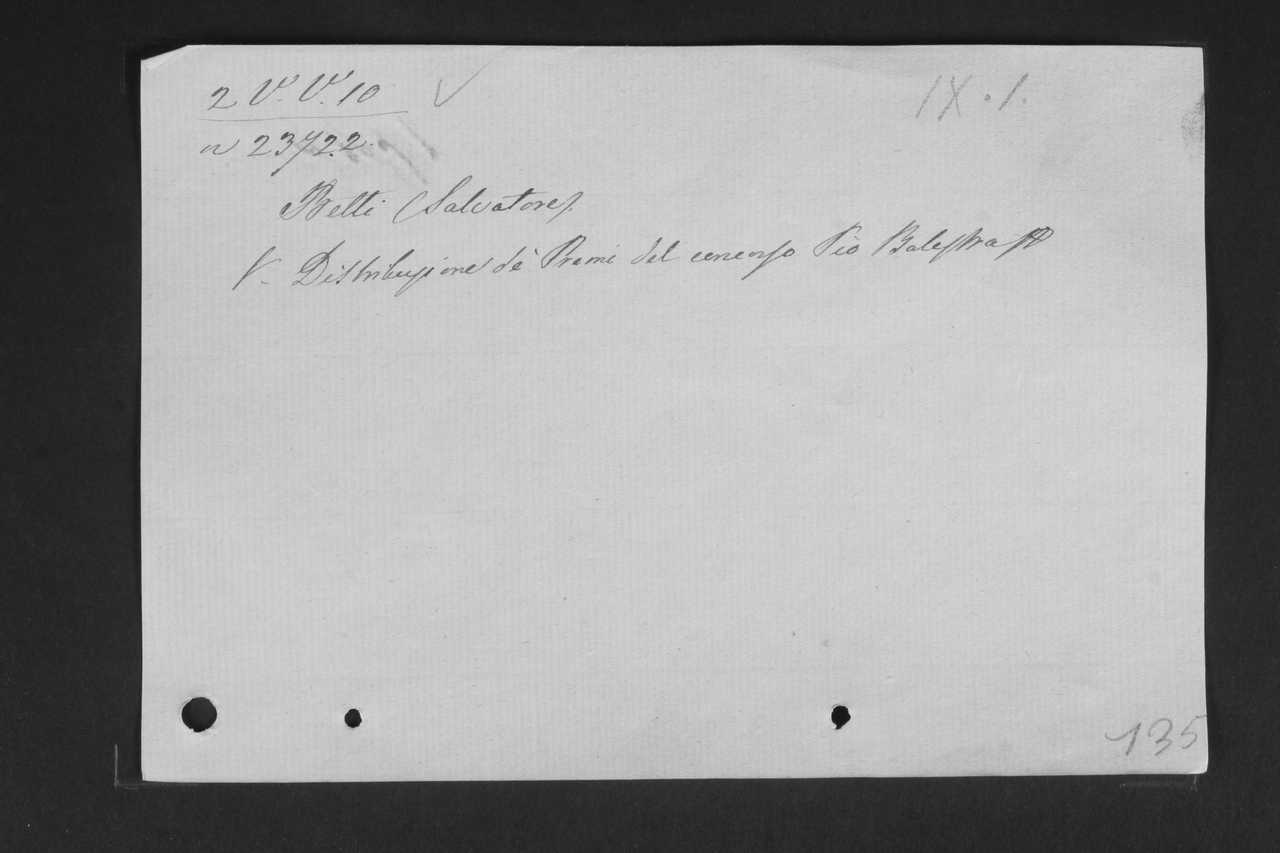 2 V. V. 10
IX. 1.
n 23722.
Betti (Salvatore).
V. Distribuzione de' Premi del concorso Pio Balestra
135